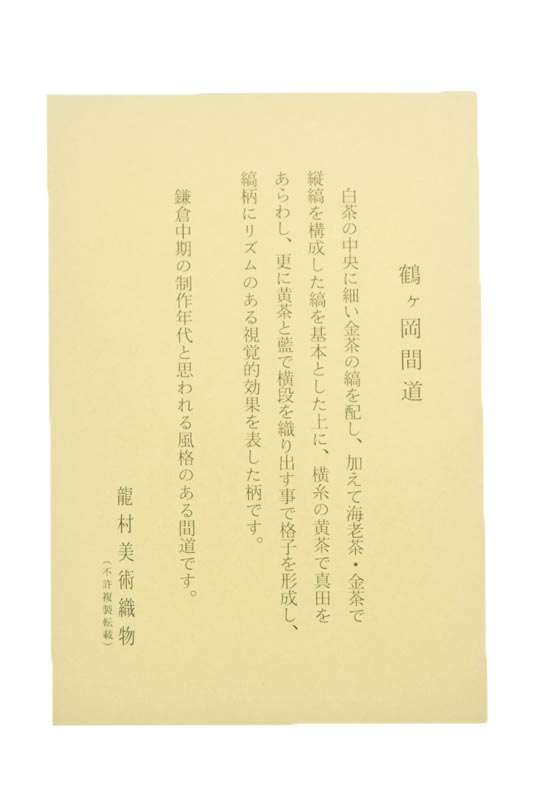 鶴ヶ岡間道
白茶の中央に細い金茶の縞を配し、加えて海老茶・金茶で
縦縞を構成した縞を基本とした上に、横糸の黄茶で真田を
あらわし、更に黄茶と藍で横段を織り出す事で格子を形成し、
縞柄にリズムのある視覚的効果を表した柄です。
鎌倉中期の制作年代と思われる風格のある間道です。
龍村美術織物
（不許複製転載）